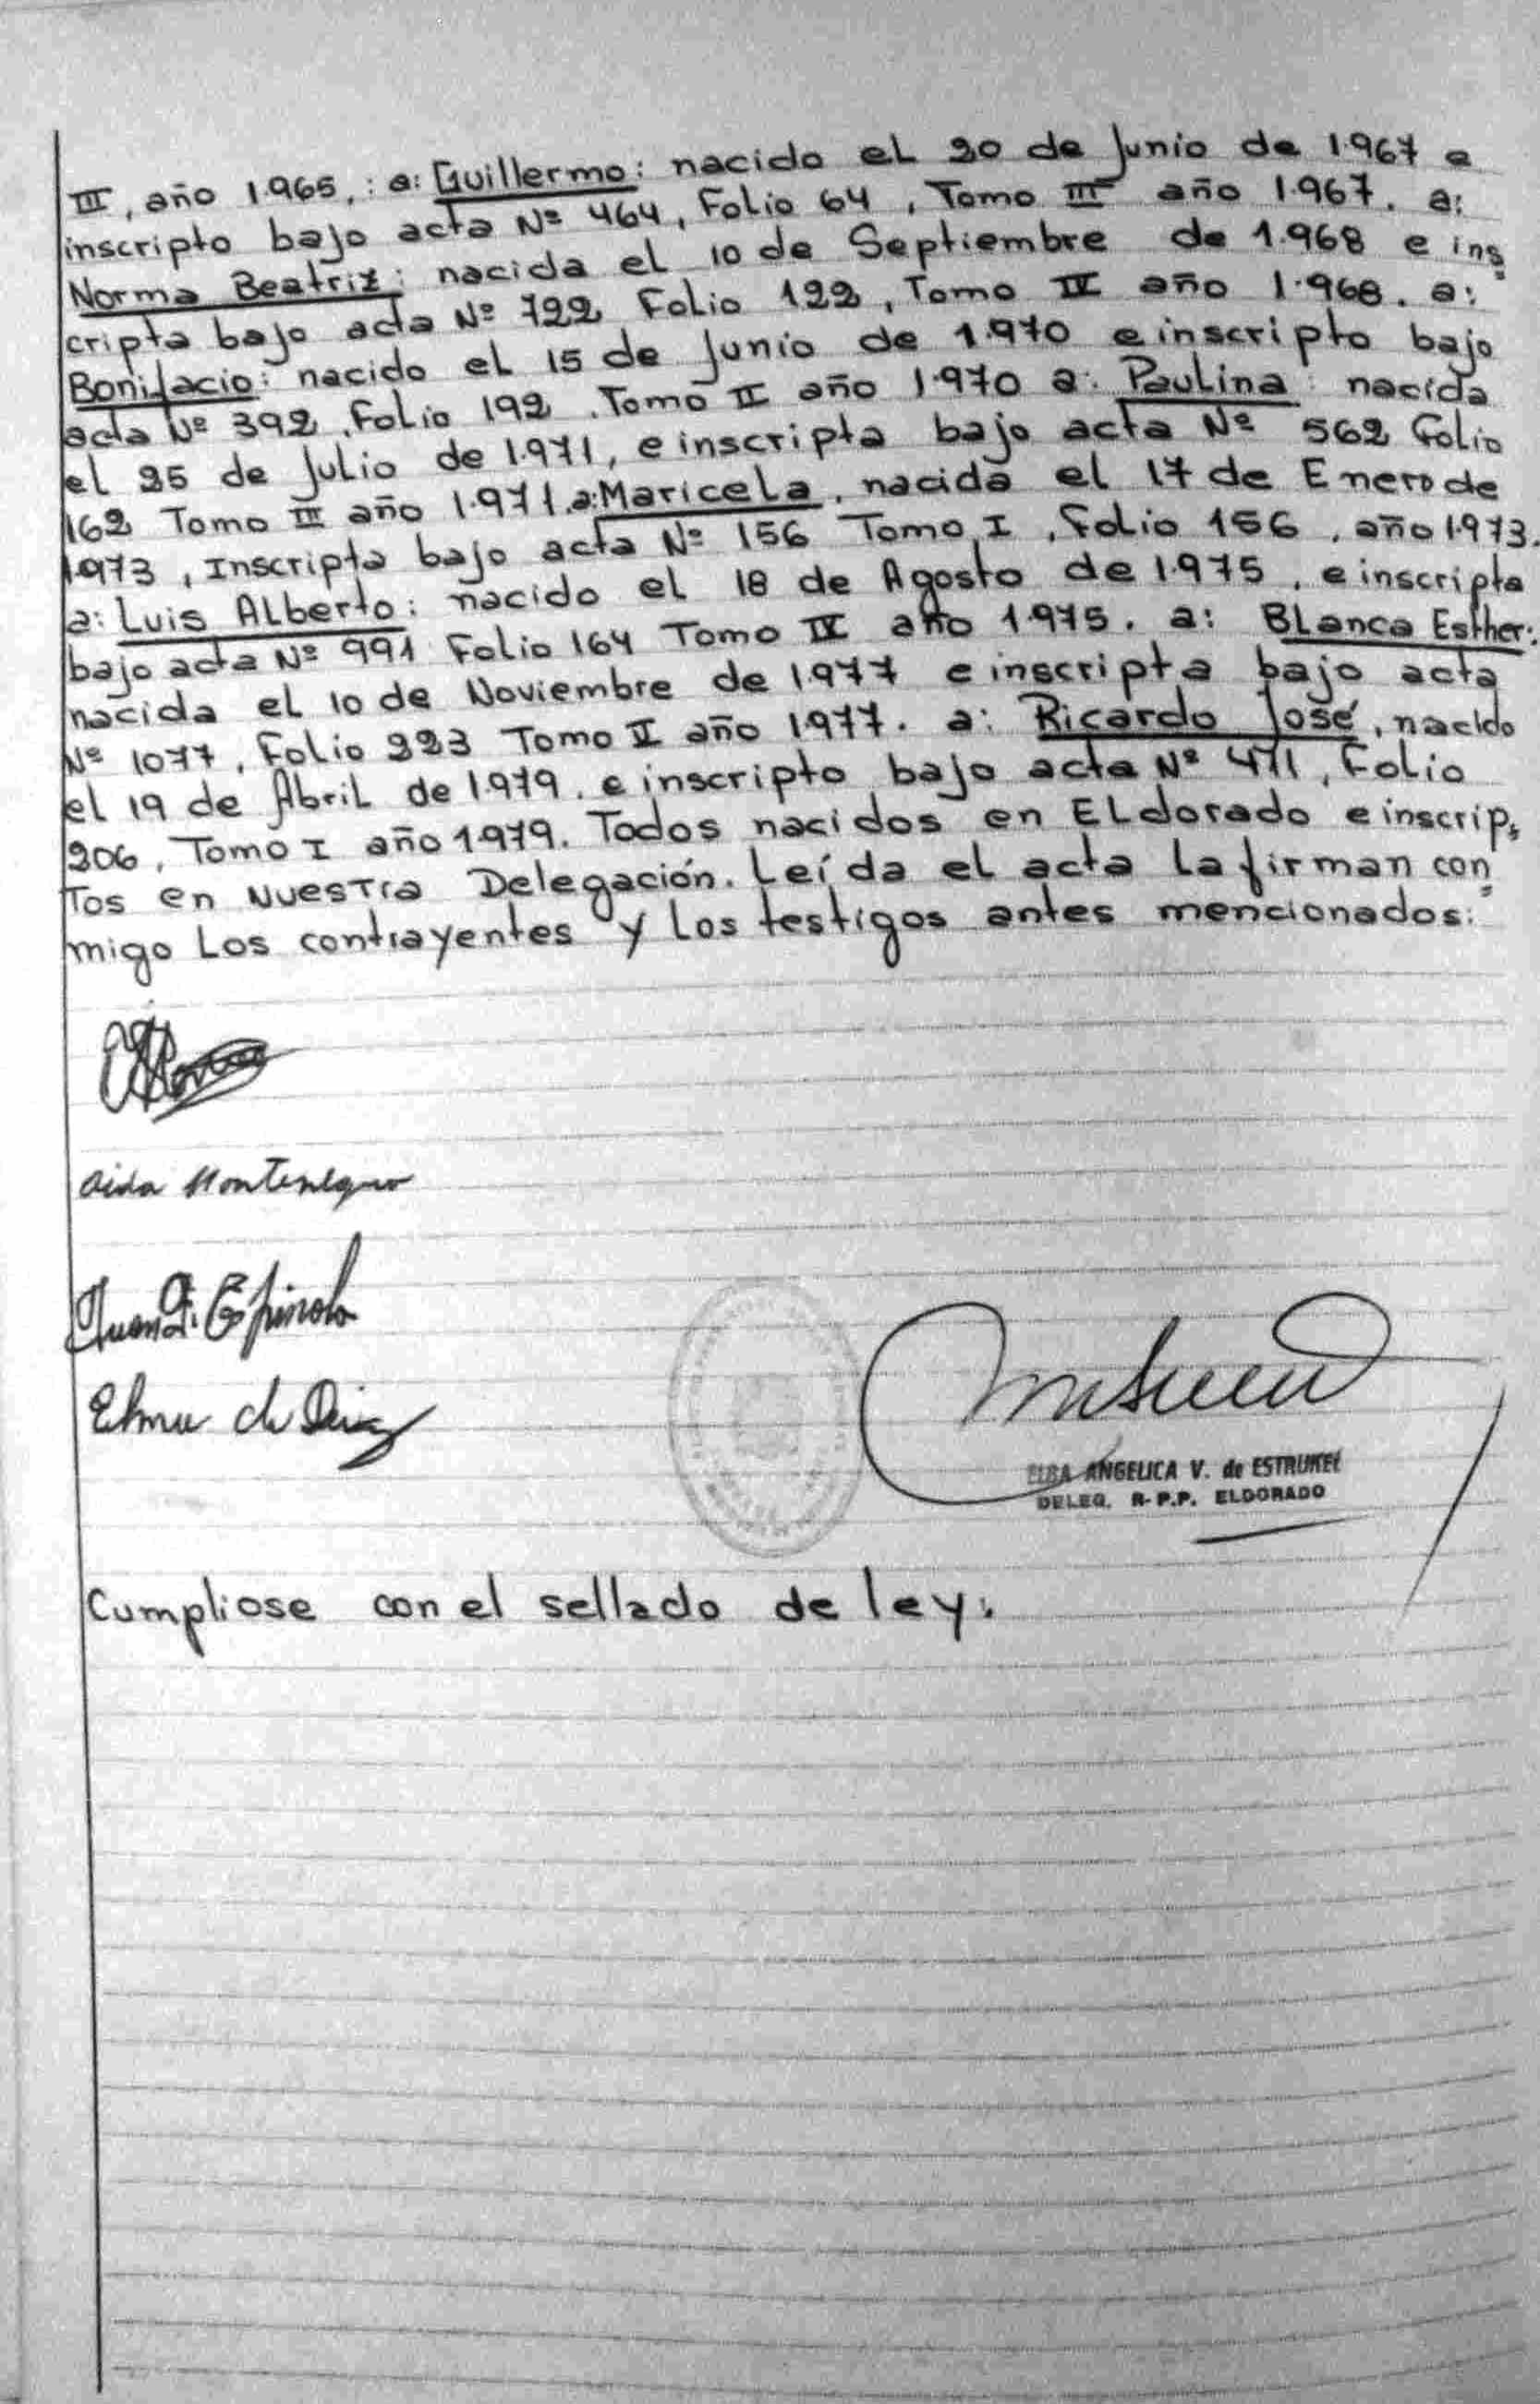 III, año 1.965,: a: Guillermo: nacido el 20 de Junio de 1.967 e
inscripto bajo acta Nº 464, Folio 64, Tomo III año 1.967. a:
Norma Beatriz: nacida el 10 de Septiembre de 1.968 e ins
cripta bajo acta Nº 722 Folio 122, Tomo IV año 1.968. a:
Bonifacio: nacido el 15 de Junio de 1.970 e inscripto bajo
acta Nº 392, Folio 192, Tomo II año 1.970 a: Paulina: nacida
el 25 de Julio de 1.971, e inscripta bajo acta Nº 562 Folio
162 Tomo III año 1.971. a: Maricela, nacida el 17 de Enero de
1.973, Inscripta bajo acta Nº 156 Tomo I, Folio 156, año 1.973.
a: Luis Alberto: nacido el 18 de Agosto de 1.975, e inscripta
bajo acta Nº 991 Folio 164 Tomo IV año 1.975. a: Blanca Esther:
nacida el 10 de Noviembre de 1.977 e inscripta bajo acta
Nº 1077, Folio 223 Tomo II año 1.977. a: Ricardo José, nacido
el 19 de Abril de 1.979. e inscripto bajo acta Nº 471, Folio
206, Tomo I año 1.979. Todos nacidos en Eldorado e inscrip-
Tos en Nuestra Delegación. Leída el acta la firman con
migo Los contrayentes y Los testigos antes mencionados:
Aida Montenegro
Juan Espinola
Elma de Diaz
ELBA ANGELICA V. de ESTRUKEL
DELEG. R-P.P. ELDORADO
Cumpliose con el sellado de ley.